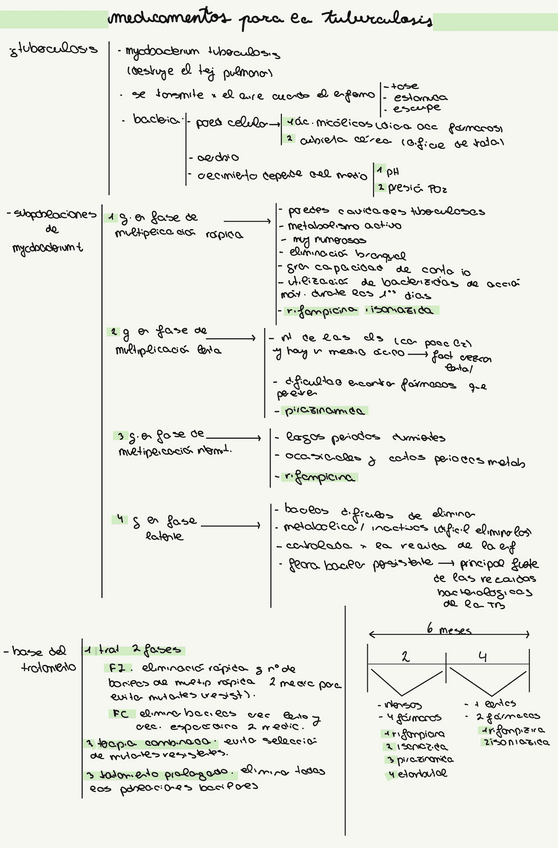 medicamentos para la tuberculosis
tuberculosis
- mycobacterium tuberculosis
(destruye el tej pulmonar)
- se transmite x el aire cuando el enfermo
- tose
- estornuda
- escupe
- bacteria:
- pared celular →
1 ác. micólicos (única acc fármacos)
2 cubierta cérea (dificie de tratar)
- aerobio
- crecimiento depende del medio
1 pH
2 presión PO2
- subpoblaciones
de
mycobacterium t
1 g. en fase de
multiplicación rápida
- paredes cavidades tuberculosas
- metabolismo activo
- muy numerosos
- eliminación bronquial
- gran capacidad de contagio
- utilización de bactericidas de acción
máx. durante los 1ros días
- rifampicina isoniazida
2 g en fase de
multiplicación lenta
- int de las cls (con poco O2)
y hay un medio ácido →
lenta)
- dificultad encontrar fármacos que
penetren
- pirazinamida
3 g. en fase de
multiplicación intermt.
- largos periodos durmientes
- ocasionales y cortos periodos metab
- rifampicina
4 g en fase
latente
- bacilos difíciles de eliminar
- metabólica/ inactivos (difícil eliminarlos)
- controlada x la recaída de la enf
- flora bacilar persistente → principal fuente
de las recaídas
bacteriológicas
de la TB
- base del
tratamiento
1 trat 2 fases
FI. eliminación rápida g nº de
bacilos de multip rápida 2 medic para
evitar mutantes (resist).
FC elimina bacilos crec lento y
crec. esporádico 2 medic.
2 terapia combinada. evita selección
de mutantes resistentes.
3 tratamiento prolongado. elimina todas
las poblaciones bacilares
6 meses
2
4
- intensos
- 4 fármacos
1 rifampicina
2 isoniazida
3 pirazinamida
4 etambutol
- + lentos
- 2 fármacos
1 rifampicina
2 isoniazida